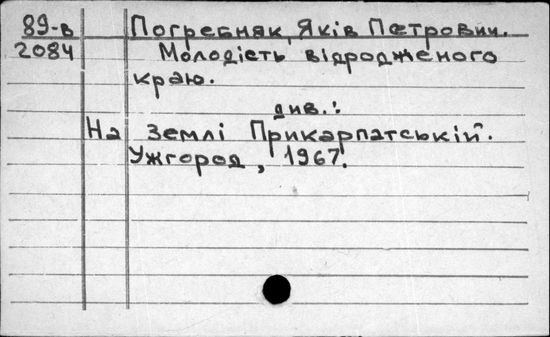 89-в Погребняк, Яків Петрович.
2084 Молодість відродженого
краю.
див.:
На землі Прикарпатській.
Ужгород, 1967.